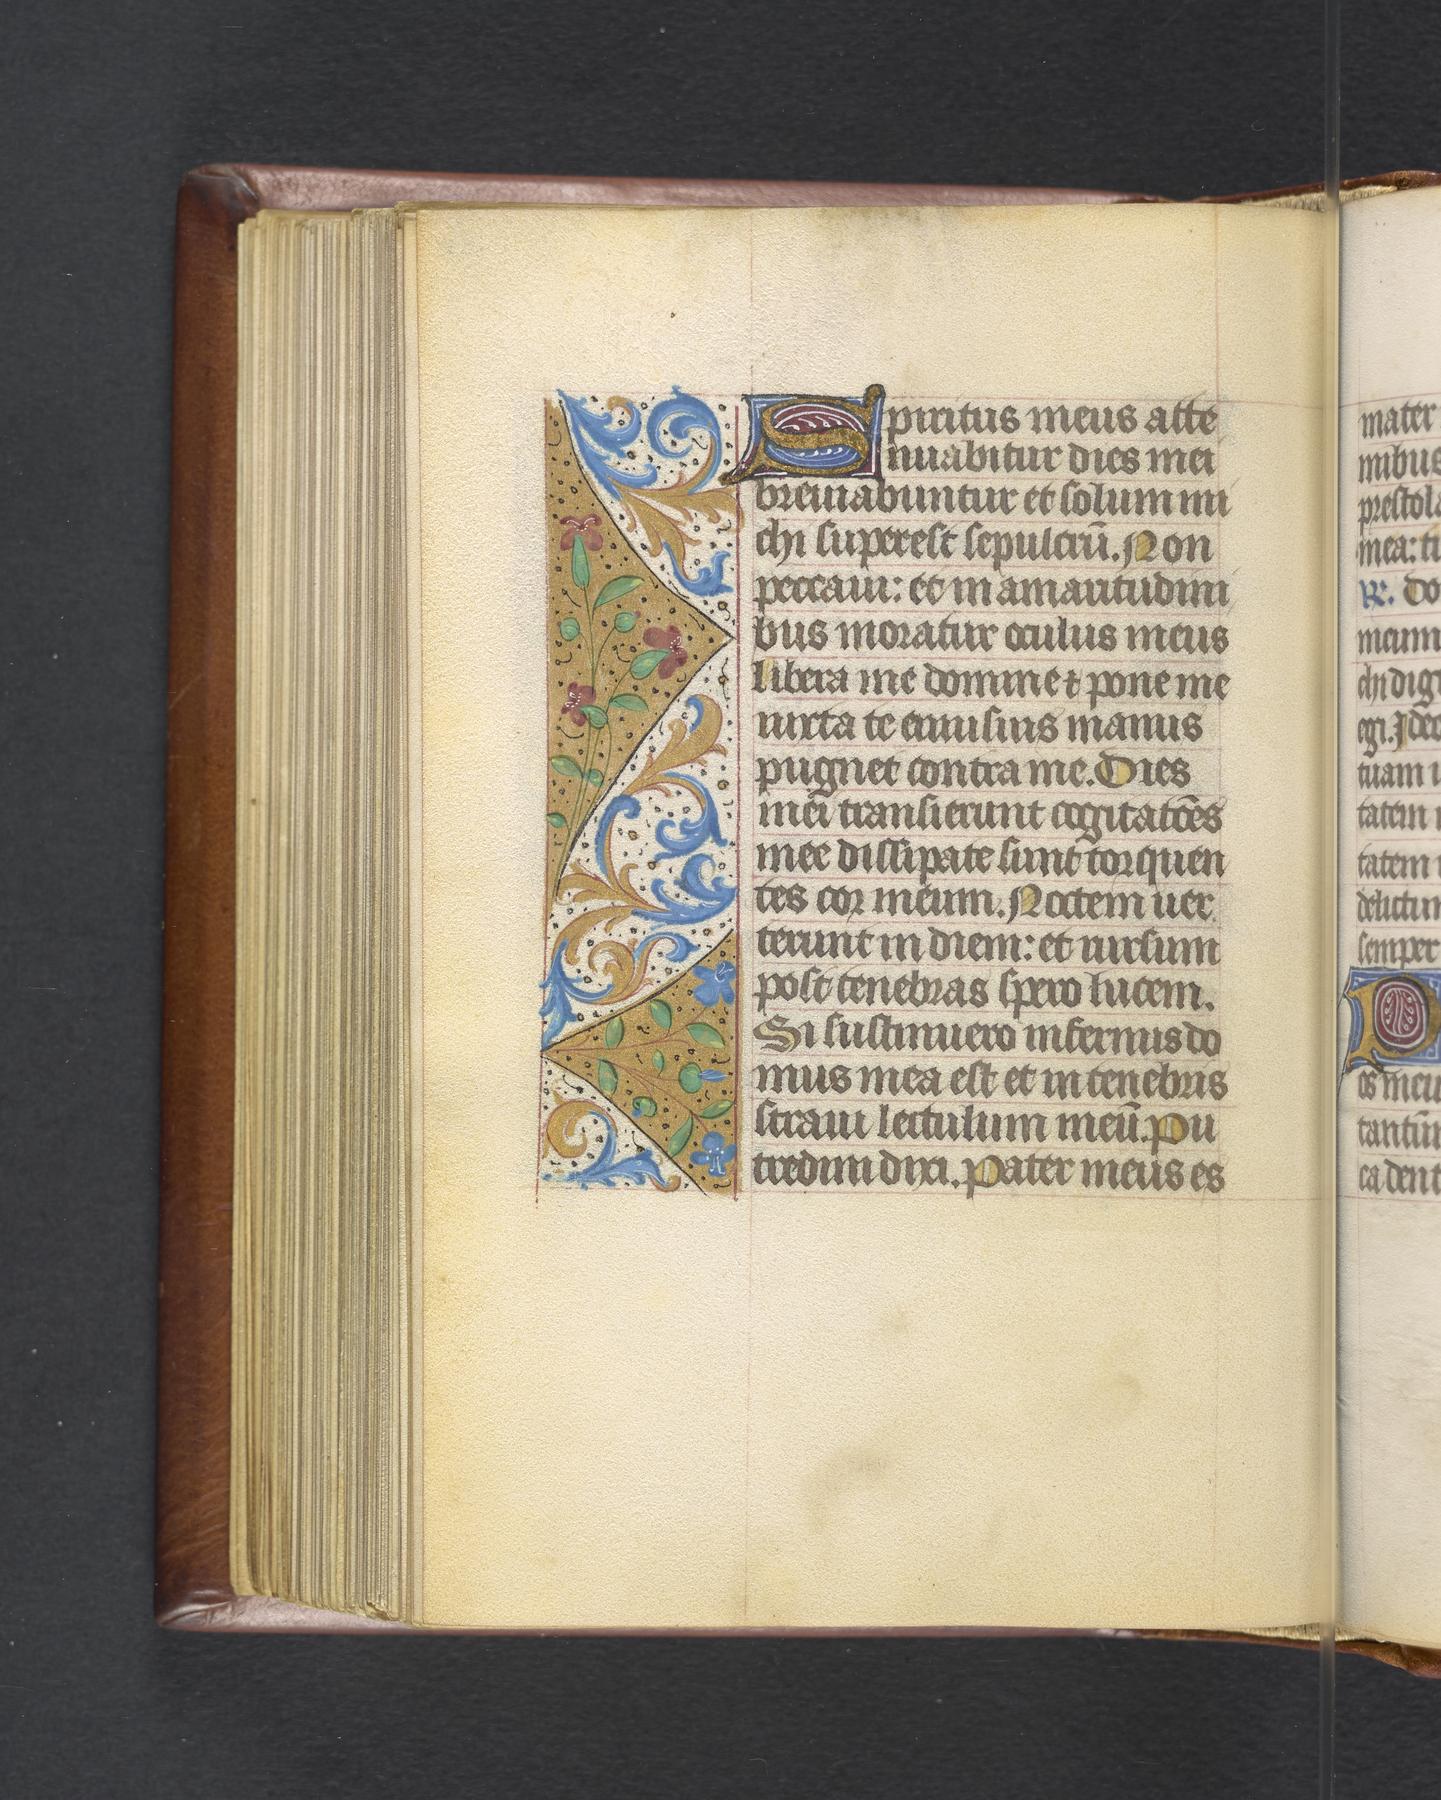 Spiritus meus atte
nuabitur dies mei
breuiabuntur et solum mi
chi superest sepulcrū. Non
peccaui: et in amaritudini
bus moratur oculus meus
libera me domine ⁊ pone me
iuxta te cuiusuis manus
pugnet contra me. Dies
mei transierunt cogitatōēs
mee dissipate sunt torquen
tes cor meum. Noctem uer
terunt in diem: et rursum
post tenebras spero lucem.
Si sustinuero infernus do
mus mea est et in tenebris
straui lectulum meū. Pu
tredini dixi. Pater meus es
mater
mibus
prestola
mea: tu
R̷. Do
meum
chi dig
egi. Ideo
tuam
tatem
tatem
delictum
semper
P
os meu
tantūm
ca dent